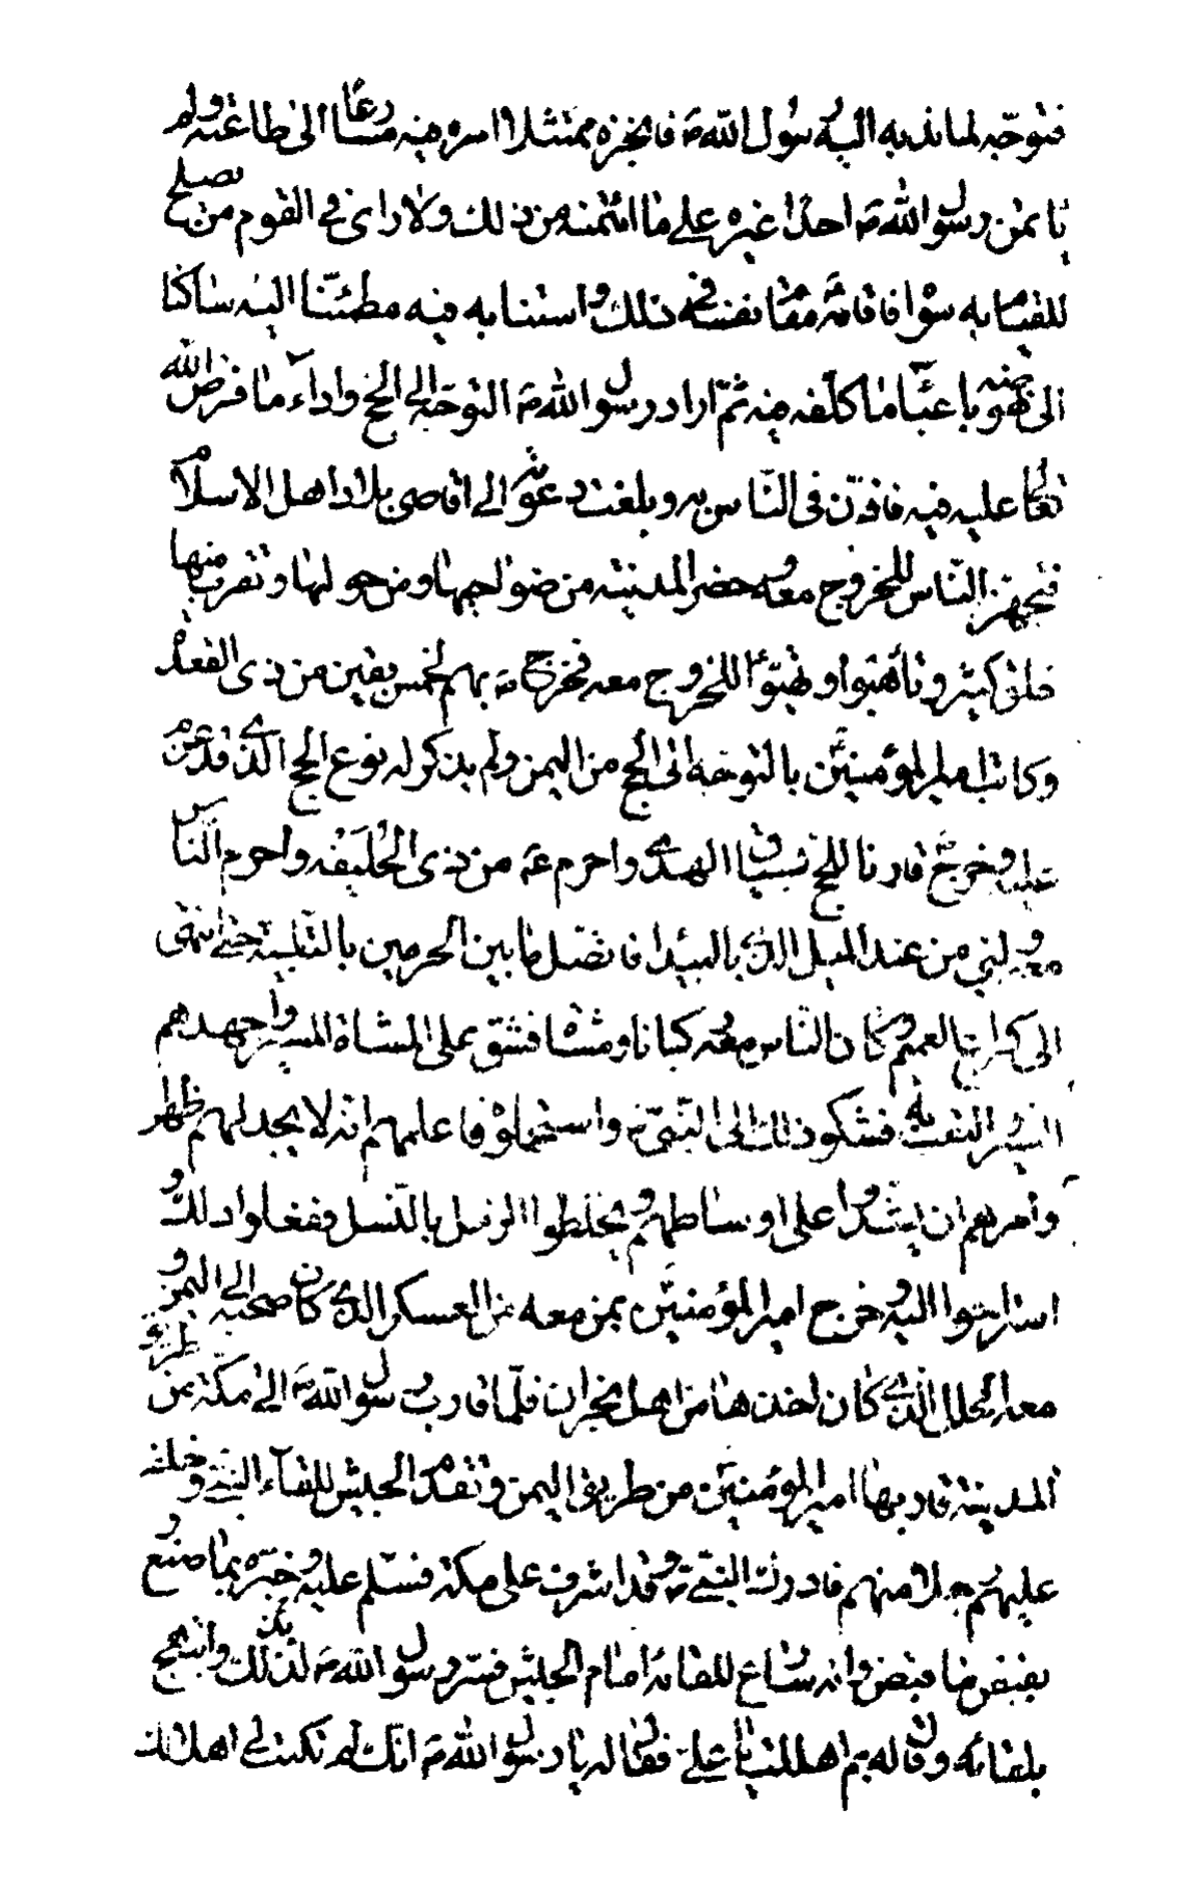 فتوجّه لما ندبه اليه رسول اللّه ص فانجزه ممتثلا امره فيه مسارعا الى طاعته ولم
ياتمن رسول اللّه ص احدا غيره على ما ائتمنه من ذلك ولا راى فى القوم من يصلح
للقيام به سواه فاقامه مقام نفسه فى ذلك واستنابه فيه مطمئنّا اليه ساكنا
الى نهوضه باعباء ما كلّفه فيه ثمّ اراد رسول اللّه ص التوجّه الى الحج واداء ما فرض اللّه
تعالى عليه فيه فاذّن فى النّاس به وبلغت دعوته الى اقاصى بلاد اهل الاسلام
فتجهّز النّاس للخروج معه وحضر المدينه من ضواحيها ومن حولها وتقرب منها
خلق كثير وتاهّبوا وتهيّؤا للخروج معه فخرج ص بهم لخمس بقين من ذى القعده
وكاتب امير المؤمنين ع بالتوجّه الى الحج من اليمن ولم يذكر له نوع الحج الّذى قد عزم
عليه وخرج ص قارنا للحج بسياق الهدى واحرم ع من ذى الحليفه واحرم النّاس
معه ولبّى من عند الميل الذى بالبيدا فاتّصل ما بين الحرمين بالتّلبيه حتّى انتهى
الى كراع الغميم وكان النّاس معه ركبانا ومشاه فشق على المشاه المسير واجهدهم
السّير والتعب به فشكوا ذلك الى النّبىّ ص واستحملوه فاعلمهم انّه لا يجد لهم ظهرا
وامرهم ان يشدّوا على اوساطهم ويخلطوا الرمل بالنّسل ففعلوا ذلك و
استراحوا اليه وخرج امير المؤمنين ع بمن معه من العسكر الذى كان صحبه الى اليمن و
معه الحلل الّذى كان اخذها من اهل نجران فلمّا قارب رسول اللّه ص الى مكّة من طريق
المدينه قاربها امير المؤمنين ع من طريق اليمن وتقدّم الجيش للقاء النبى ص وخلف
عليهم رجلا منهم فادرك النبى ص وقد اشرف على مكّة فسلّم عليه وخبّره بما صنع و
بقبض ما قبض وانه سارع للقائه امام الجيش فسرّ رسول اللّه ص لذلك وابتهج
بلقائه وقال له بم اهللت يا على فقال له يا رسول اللّه ص انّك لم تكتب لى اهلالك